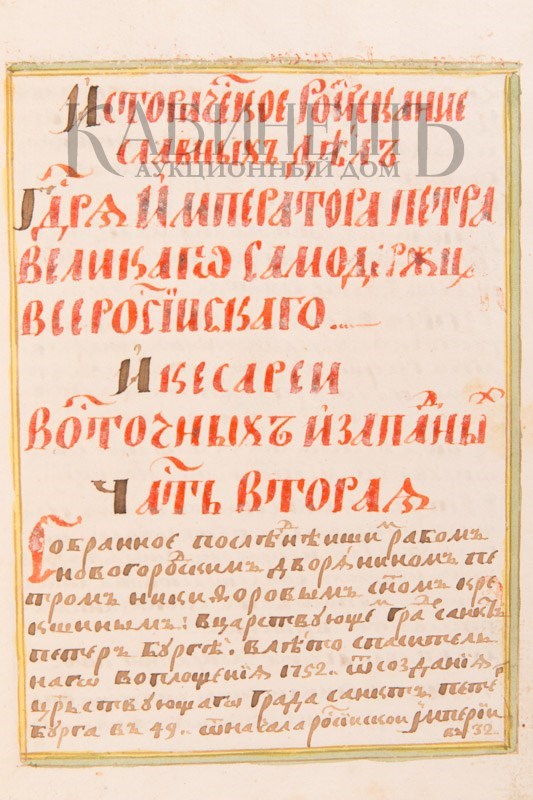 Историческое розыскание
славных дѣлъ
Гдⷭ҇рѧ Императора Петра
великагѡ самодержца
всеросїискаго.....
и кесареи
восточныхъ и запаⷣныⷯ
часть вторая
Собранное послѣднѣишиⷨ рабомъ
новогороⷣскимъ дворяниномъ пе
тромъ никиѳоровымъ сн҃омъ кре
кшинымъ: в царствующеⷨ граⷣе санктъ
петеръ бургѣ. в лѣто спасителѧ
нагѡ воплощенїѧ 1752. ѿ созданїѧ
царьствующагѡ града санктъ пете
бурга въ 49. ѿ начала росїискои Імперїи
въ 32
КАБИНЕТЪ
АУКЦИОННЫЙ ДОМ